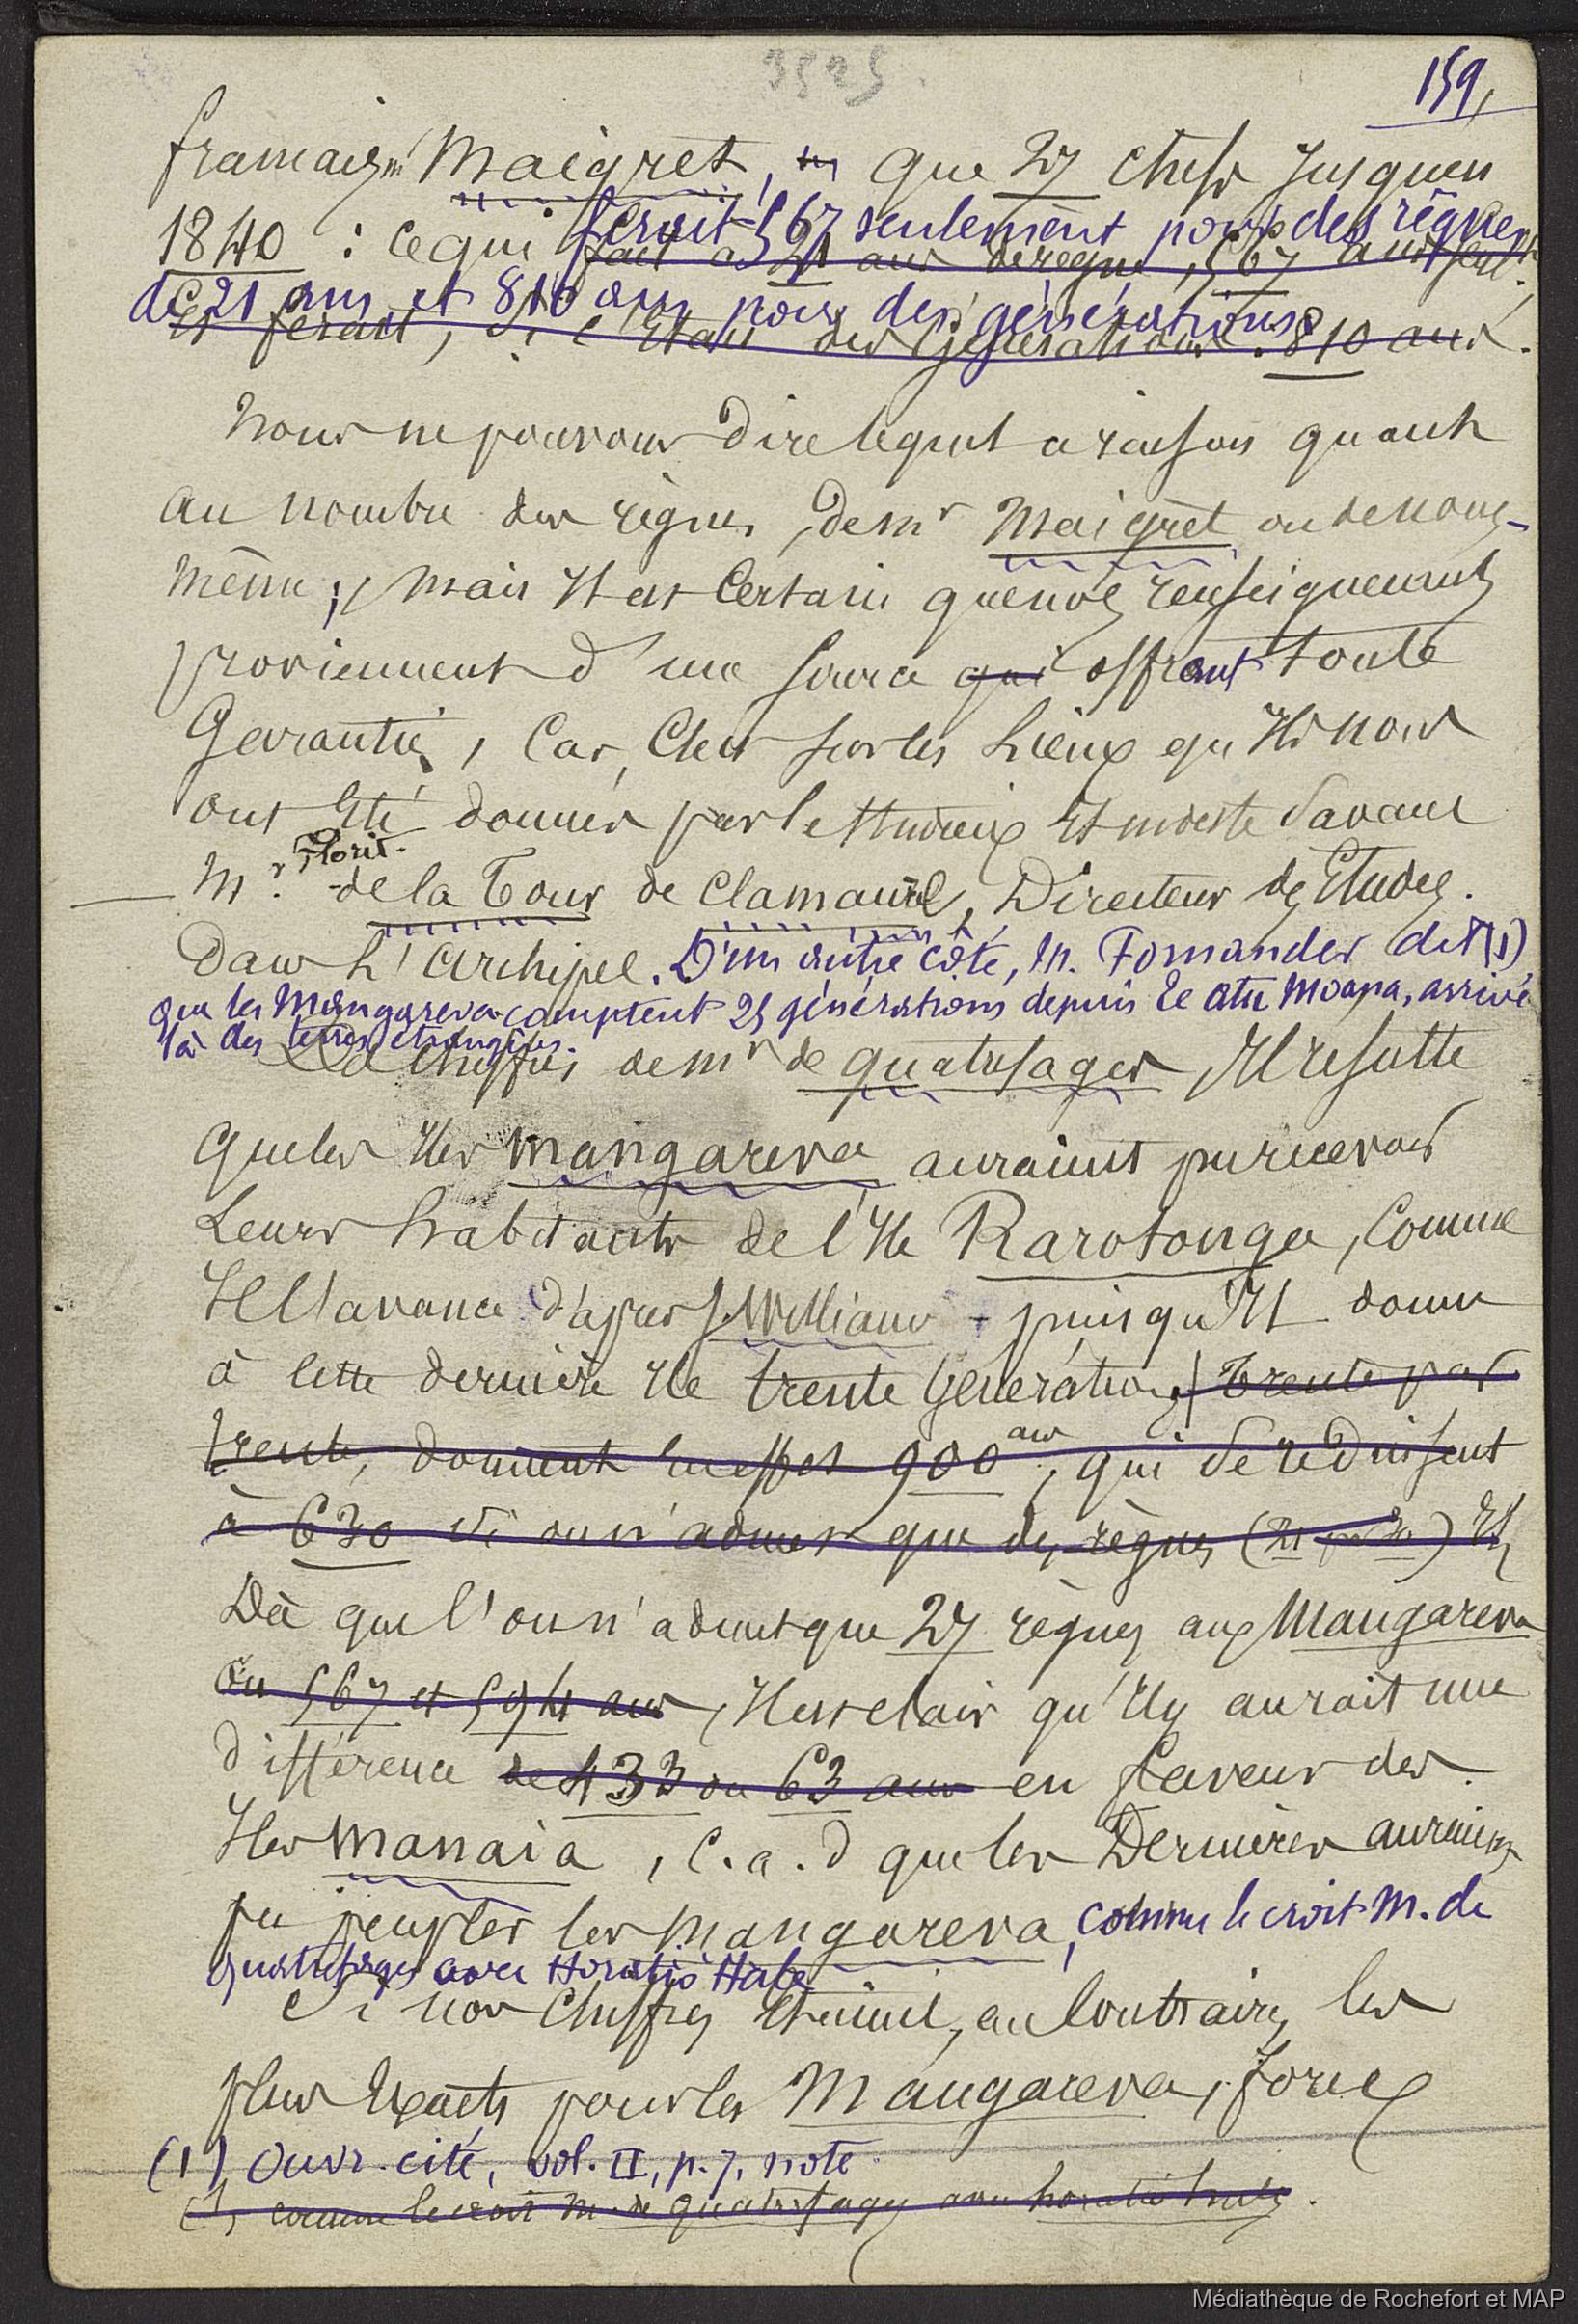 3525
159,
français Maigret, que 27 chefs jusqu'en
1840 : ce qui ferait 567 seulement pour des règnes
fait à 21 ans de règne, 567 ans seult.
de 21 ans et 810 ans pour des générations
et ferait, si c'était des Générations : 810 ans.
Nous ne pouvons dire lequel a raison quant
au nombre des règnes, de Mr Maigret ou de nous-
même ; mais Il est Certain que nos renseignements
proviennent d'une source qui offrant toute
Garantie, Car, C'est sur les Lieux qu'Ils nous
ont Eté donnés par le studieux Et modeste Savant
Mr. Florit
de la Tour de Clamauze, Directeur des Etudes.
Dans L'Archipel. D'un autre côté, M. Fornander dit (1)
que les Mangareva comptent 25 générations depuis le atu Moana, arrivé
là des terres étrangères.
Des Chiffres de Mr de Quatrefages Il résulte
que les Iles Mangareva auraient pu recevoir
Leurs habitants de l'Ile Rarotonga, Comme
Il l'avance d'après J. Williams - puisqu'Il donne
à cette dernière Ile trente Générations, Trente par
trente, donnent en effet 900 ans, qui se réduisent
à 630 si on n'admet que des règnes (21 par 30) Et,
Dès que l'on n'admet que 27 règnes aux Mangareva
ou 567 et 594 ans, Il est clair qu'Il y aurait une
différence de 433 ou 63 ans en faveur des
Iles Manaia, C.a.d que les Dernières auraient
pu peupler les Mangareva, comme le croit M. de
Quatrefages avec Horatio Hale
Si nos Chiffres étaient, au Contraire, les
plus Exacts pour les Mangareva, force
(1) Ouvr. cité, vol. II, p. 7, note
(1) comme le croit M. de Quatrefages avec horatio hale.
Médiathèque de Rochefort et MAP